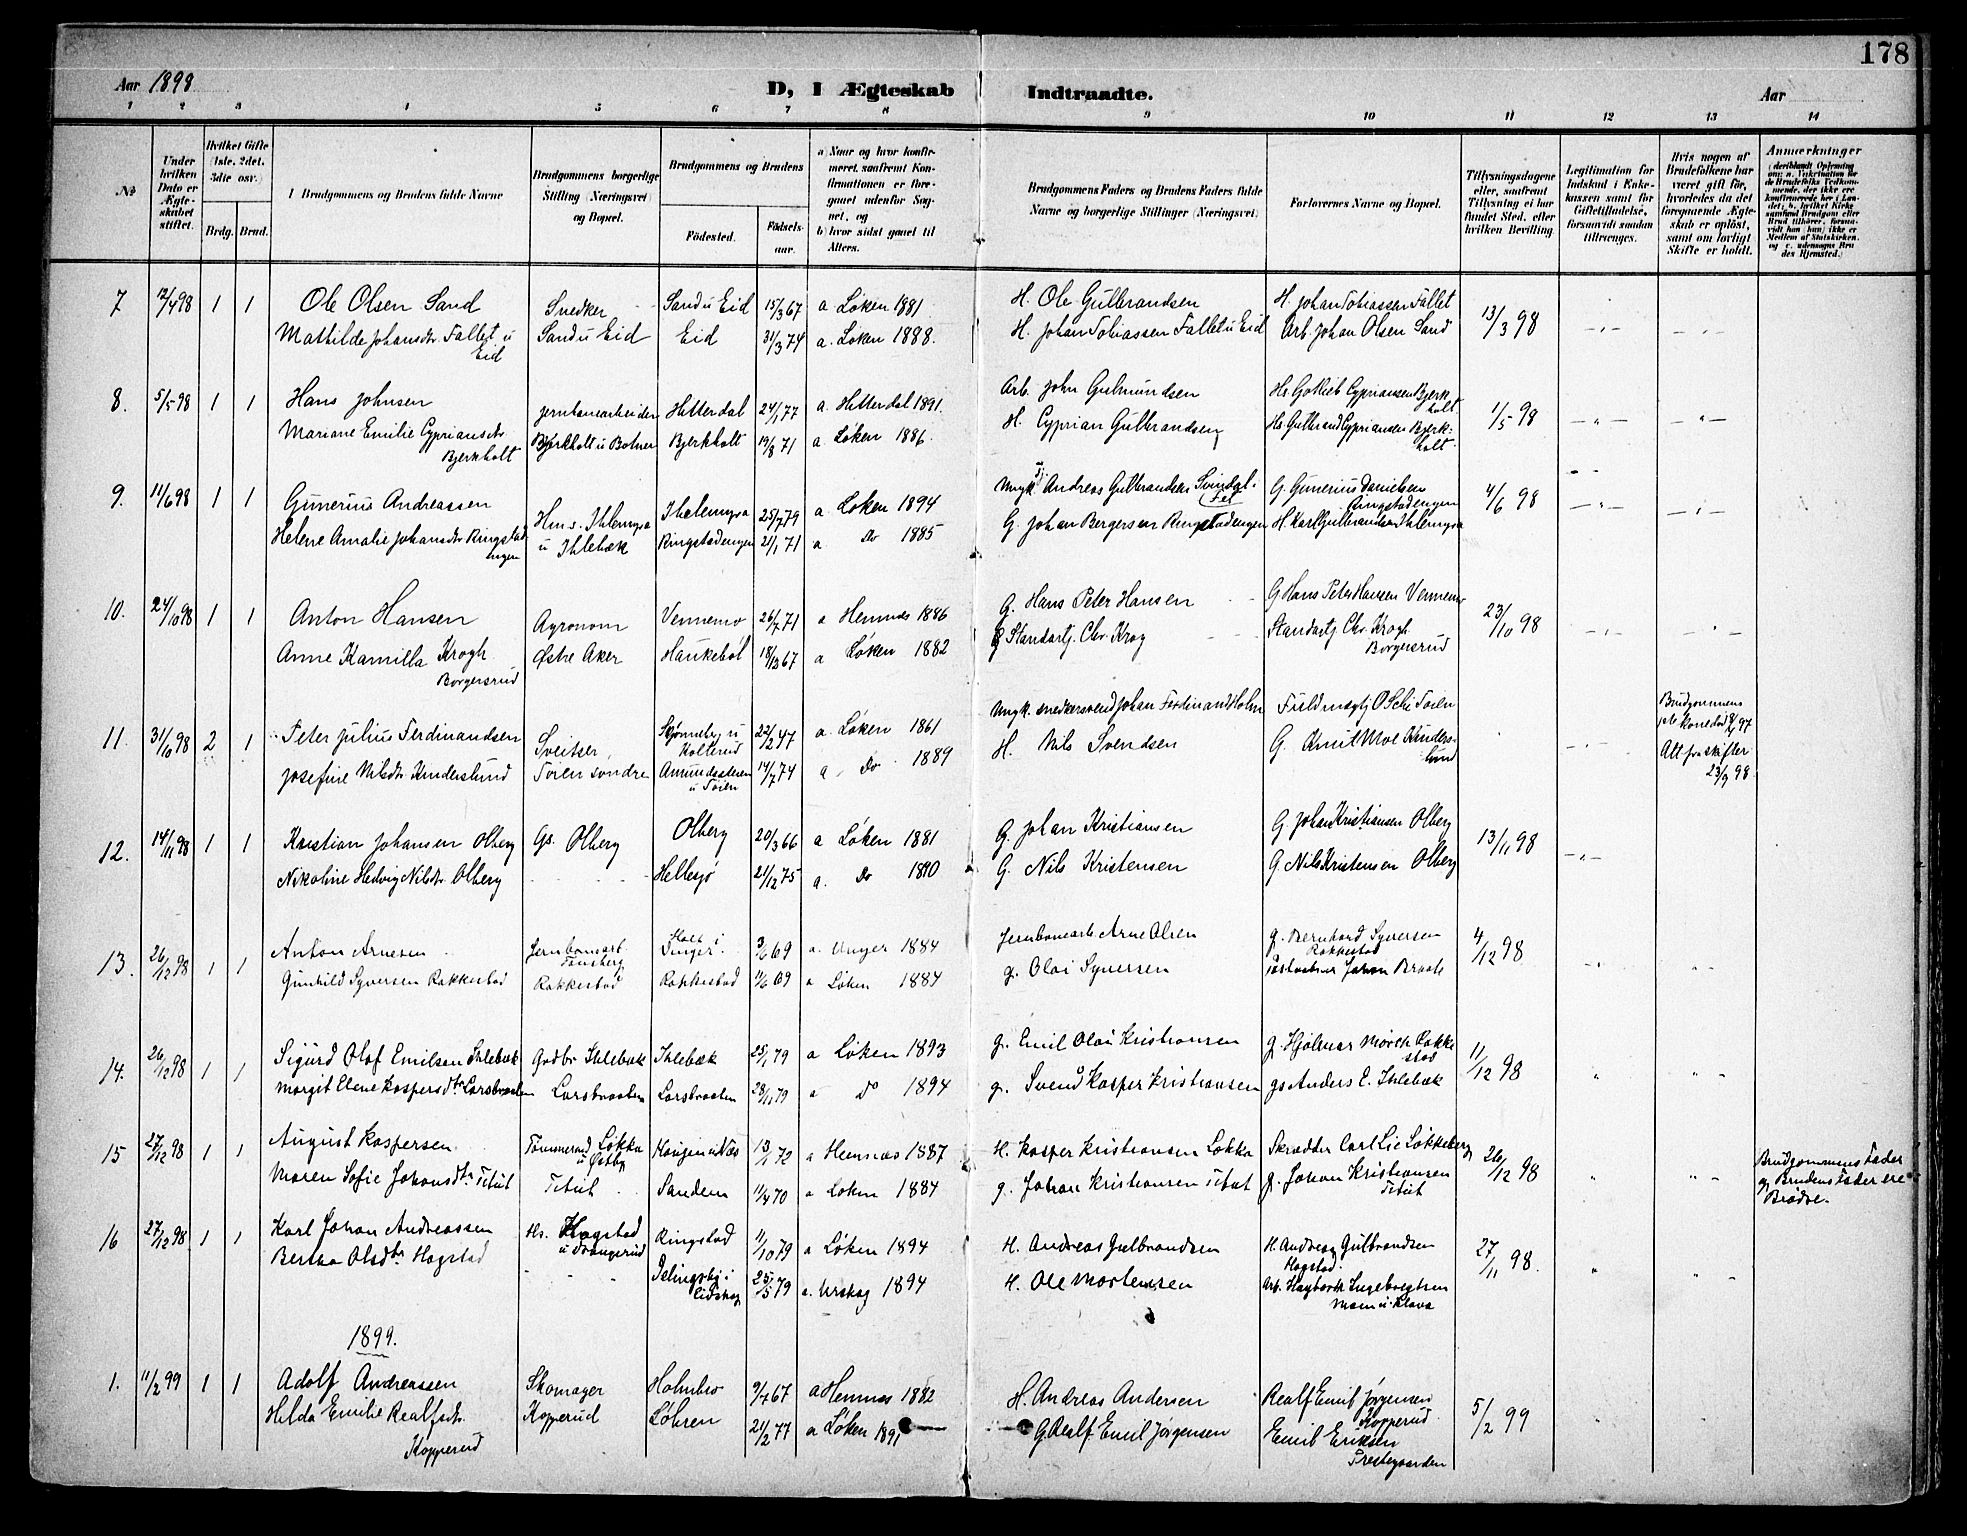 178
Aar 1898
D, I Ægteskab Indtraadte.
Aar
1 2 3 4 5 6 7 8 9 10 11 12 13 14
No
Under hvilken Dato er Ægteskabet stiftet.
Hvilket Gifte (1ste, 2det, 3die osv.)
Brdg. Brud.
I Brudgommens og Brudens fulde Navne
Brudgommens borgerlige Stilling (Næringsvei) og Bopæl.
Brudgommens og Brudens
Fødested. Fødselsaar.
a) Naar og hvor konfirmeret, saafremt Konfirmationen er foregaaet udenfor Sognet, og
b) hvor sidst gaaet til Alters.
Brudgommens Faders og Brudens Faders fulde Navne og borgerlige Stillinger (Næringsvei)
Forlovernes Navne og Bopæl.
Tillysningsdagene eller, saafremt Tillysning ei har fundet Sted, efter hvilken Bevilling
Legitimation for Indskud i Enkekassen samt for Giftetilladelse, forsaavidt saadan tiltrænges.
Hvis nogen af Brudefolkene har været gift før, hvorledes da det foregaaende Ægteskab er opløst, samt om lovligt Skifte er holdt.
Anmærkninger
7 12/4 98 1 1 Ole Olsen Sand Snedker Sand u Eid 15/3 67 a Løken 1881 H. Ole Gulbrandsen H. Johan Tobiassen Fallet 13/3 98
Mathilde Johansdtr. Fallet u Eid Sand u Eid Eid 31/3 74 a. Løken 1888. H. Johan Tobiassen Fallet u Eid Arb. Johan Olsen Sand
8. 5/5 98 1 1 Hans Johnsen Jernbanearbeider Hitterdal 24/1 77 a. Hitterdal 1891. Arb. John Gulmundsen Hs. Gotlieb Cypriansen Bjerkholt 1/5 98
Mariane Emilie Cypriansdtr. Bjerkholt Bjerkholt u Botner Bjerkholt 19/8 71 a Løken 1886. H. Cyprian Gulbrandsen Hs. Gulbrand Cypriansen Bjerkholt.
9. 11/6 98 1 1 Gunerius Andreassen Hms. Ihlemyra Ihlemyra 25/7 79 a Løken 1894 Ungk. Andreas Gulbrandsen Svindal. Fet G. Gunerius Danielsen Ringstadengen 4/6 98
Helene Amalie Johansdtr Ringstadengen u Ihlebæk Ringstadengen 21/1 71 a Do 1885 G. Johan Bergersen Ringstadengen H. Karl Gulbrandsen Ihlemyra
10. 24/10 98 1 1 Anton Hansen Agronom Vennemo 26/7 71 a Hemnæs 1886 G. Hans Peter Hansen G Hans Peter Hansen Vennemo 23/10 98
Anne Kamilla Krogh Borgersrud Østre Aker Haukebøl 18/3 67 a Løken 1882 Standartj. Chr. Krog Standartj Chr. Krogh Borgersrud
11. 31/10 98 2 1 Peter Julius Ferdinandsen Sveitser Skjønneby u Kolterud 22/2 47 a. Løken 1861 Ungk. snedkersvend Johan Ferdinand Holm Fuldmægtj O Schi Toien Brudgommens Konedød 8/4 97
Josefine Nilsdtr Kinderslund Toien søndre Amundsæteren u Toien 14/7 74 a. Do 1889 H. Nils Svendsen G. Emil Moe Kinderslund Alt fraskifter 23/9 98
12. 14/11 98 1 1 Kristian Johansen Olberg Gs. Olberg Olberg 20/3 66 a Løken 1881 G. Johan Kristiansen G Johan Kristiansen Olberg 13/11 98
Nikoline Hedvig Nilsdtr Olberg Hellesjø 21/12 75 a. Do 1890 G. Nils Kristensen G Nils Kristensen Olberg
13. 26/12 98 1 1 Anton Arnesen Jernbanearb. Tønsberg 3/6 69 a. 1884 Jernbanearb. Arne Olsen g. Bernhard Syversen Rakkestad 4/12 98
Gunhild Syversen Rakkestad Rakkestad Rakkestad 11/6 69 a Løken 1884 g. Olai Syversen Johan Braate
14. 26/12 98 1 1 Sigurd Olaf Emilsen Ihlebæk Gadbr Ihlebæk Ihlebæk 25/1 79 a Løken 1893 g. Emil Olai Kristiansen g. Hjalmar Mørch Rakkestad 11/12 98
Margit Elene Kaspersdtr. Larsbraaten Larsbraaten Larsbraaten 28/11 79 a Do 1894 g. Svend Kasper Kristiansen gs Anders E. Ihlebæk
15 27/12 98 1 1 August Kaspersen Tømmermand Løkka u Østby 13/1 72 a Hemnæs 1887 H. Kasper Kristiansen Løkka Skrædder Carl Lie Løkkeberg 26/12 98 Brudgommens Fader og Brudens Fader ere Brødre.
Maren Sofie Johansdtr. Titut Titut Sandem 11/4 70 a Løken 1884 g. Johan Kristiansen Titut g. Johan Kristiansen Titut
16 27/12 98 1 1 Karl Johan Andreassen Hs. Hogstad Ringstad 11/10 79 a Løken 1894 H. Andreas Gulbrandsen H. Andreas Gulbrandsen Hogstad. 27/11 98.
Bertha Olsdtr Hogstad 25/5 79 a. Urskog 1894 H. Ole Mortensen Arb. Hagbarth Ingebregtsen
1899.
1. 11/2 99 1 1 Adolf Andreassen Skomager Holmbro 9/7 67 a Hemnæs 1882 H. Andreas Andersen Realf Emil Jørgensen Kopperud 5/2 99
Hilda Emilie Realfsdtr. Kopperud Kopperud Løhren 21/2 77 a Løken 1891 G. Realf Emil Jørgensen Emil Eriksen Prestegaarden